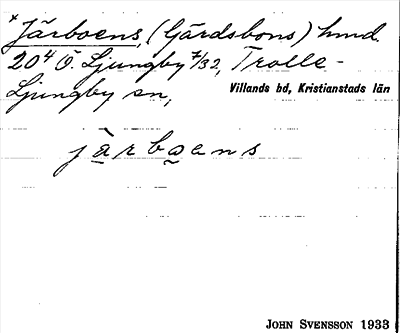 * Järboens, (Gärdsbons) hmd.
20⁴ Ö. Ljungby 7/32, Trolle-
Ljungby sn, Villands bd, Kristianstads län
jàrboens
JOHN SVENSSON 1933